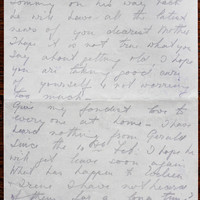 Tommy on his way back
he was here. all the latest
news of you dearest Mother
I hope it is not true what you
say about getting old. I hope
you are taking good care
of yourself is not worrying
too much.
Give my fondest love to
every one at home. I have
heard nothing from Gerald
since the 10th Feb. I hope he
will get leave soon again.
What has happened
Irene I have not heard
for a long time